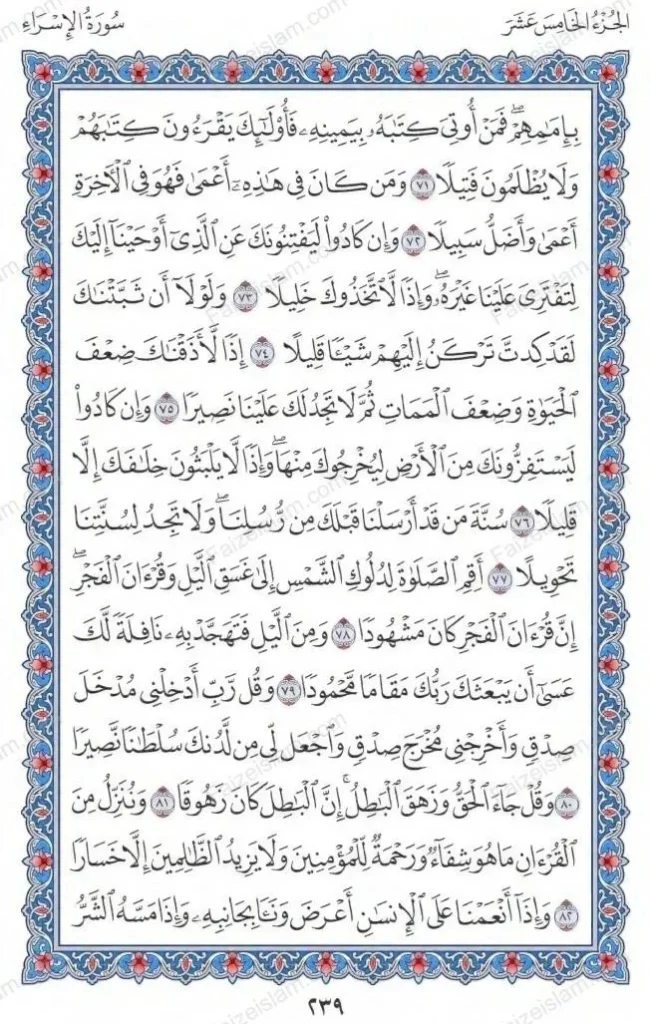 الجُزْءُ الخَامِسَ عَشَرَ
سُورَةُ الإِسْرَاءِ
بِإِمَٰمِهِمْۖ فَمَنْ أُوتِيَ كِتَٰبَهُۥ بِيَمِينِهِۦ فَأُوْلَٰٓئِكَ يَقْرَءُونَ كِتَٰبَهُمْ
وَلَا يُظْلَمُونَ فَتِيلًا ٧١ وَمَن كَانَ فِي هَٰذِهِۦٓ أَعْمَىٰ فَهُوَ فِي ٱلْأٓخِرَةِ
أَعْمَىٰ وَأَضَلُّ سَبِيلًا ٧٢ وَإِن كَادُواْ لَيَفْتِنُونَكَ عَنِ ٱلَّذِيٓ أَوْحَيْنَآ إِلَيْكَ
لِتَفْتَرِيَ عَلَيْنَا غَيْرَهُۥۖ وَإِذًا لَّٱتَّخَذُوكَ خَلِيلًا ٧٣ وَلَوْلَآ أَن ثَبَّتْنَٰكَ
لَقَدْ كِدتَّ تَرْكَنُ إِلَيْهِمْ شَيْـًٔا قَلِيلًا ٧٤ إِذًا لَّأَذَقْنَٰكَ ضِعْفَ
ٱلْحَيَوٰةِ وَضِعْفَ ٱلْمَمَاتِ ثُمَّ لَا تَجِدُ لَكَ عَلَيْنَا نَصِيرًا ٧٥ وَإِن كَادُواْ
لَيَسْتَفِزُّونَكَ مِنَ ٱلْأَرْضِ لِيُخْرِجُوكَ مِنْهَاۖ وَإِذًا لَّا يَلْبَثُونَ خِلَٰفَكَ إِلَّا
قَلِيلًا ٧٦ سُنَّةَ مَن قَدْ أَرْسَلْنَا قَبْلَكَ مِن رُّسُلِنَاۖ وَلَا تَجِدُ لِسُنَّتِنَا
تَحْوِيلًا ٧٧ أَقِمِ ٱلصَّلَوٰةَ لِدُلُوكِ ٱلشَّمْسِ إِلَىٰ غَسَقِ ٱلَّيْلِ وَقُرْءَانَ ٱلْفَجْرِۖ
إِنَّ قُرْءَانَ ٱلْفَجْرِ كَانَ مَشْهُودًا ٧٨ وَمِنَ ٱلَّيْلِ فَتَهَجَّدْ بِهِۦ نَافِلَةً لَّكَ
عَسَىٰٓ أَن يَبْعَثَكَ رَبُّكَ مَقَامًا مَّحْمُودًا ٧٩ وَقُل رَّبِّ أَدْخِلْنِي مُدْخَلَ
صِدْقٍ وَأَخْرِجْنِي مُخْرَجَ صِدْقٍ وَٱجْعَل لِّي مِن لَّدُنكَ سُلْطَٰنًا نَّصِيرًا
٨٠ وَقُلْ جَآءَ ٱلْحَقُّ وَزَهَقَ ٱلْبَٰطِلُۚ إِنَّ ٱلْبَٰطِلَ كَانَ زَهُوقًا ٨١ وَنُنَزِّلُ مِنَ
ٱلْقُرْءَانِ مَا هُوَ شِفَآءٌ وَرَحْمَةٌ لِّلْمُؤْمِنِينَ وَلَا يَزِيدُ ٱلظَّٰلِمِينَ إِلَّا خَسَارًا
٨٢ وَإِذَآ أَنْعَمْنَا عَلَى ٱلْإِنسَٰنِ أَعْرَضَ وَنَـَٔا بِجَانِبِهِۦ وَإِذَا مَسَّهُ ٱلشَّرُّ
٢٣٩
Faizeislam.com